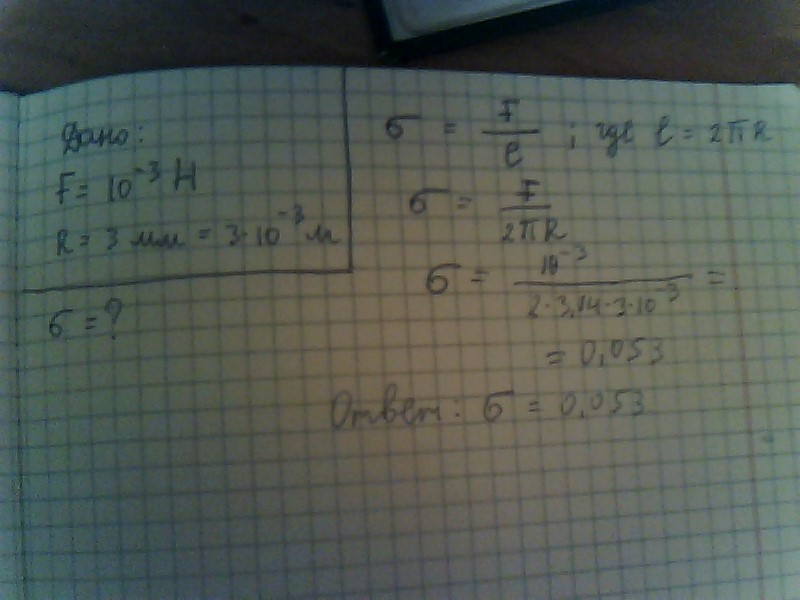 Дано:
F = 10⁻³ Н
R = 3 мм = 3·10⁻³ м
σ = ?
σ = F/ℓ ; где ℓ = 2πR
σ = F/2πR
σ = 10⁻³/2·3,14·3·10⁻³ =
= 0,053
Ответ: σ = 0,053